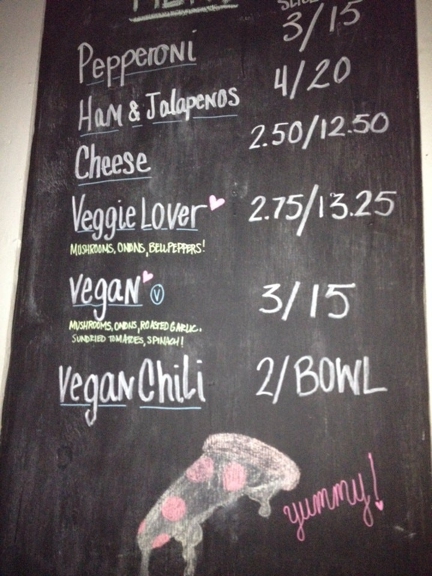 MENU
SLICE
Pepperoni 3/15
Ham & Jalapenos 4/20
Cheese 2.50/12.50
Veggie Lover 2.75/13.25
MUSHROOMS, ONONS, BELL PEPPERS!
vegan V 3/15
MUSHROOMS, ONIONS, ROASTED GARLIC,
SUNDRIED TOMATOES, SPINACH!
Vegan Chili 2/BOWL
yummy!